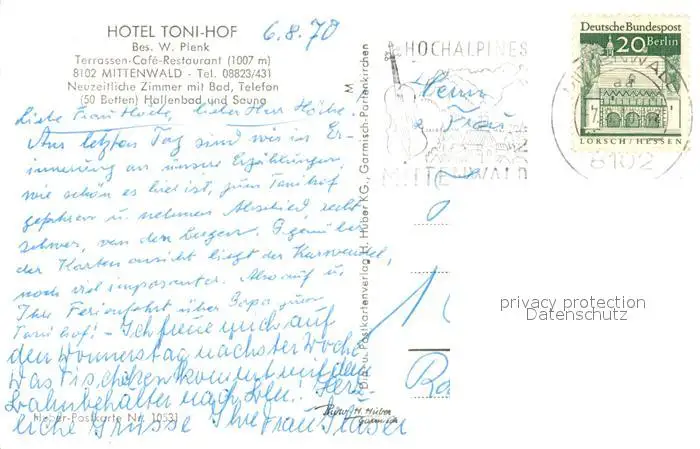 HOTEL TONI-HOF
Bes. W. Plenk
Terrassen-Café-Restaurant (1007 m)
8102 MITTENWALD - Tel. 08823/431
Neuzeitliche Zimmer mit Bad, Telefon
(50 Betten) Hallenbad und Sauna
6.8.70
Liebe Frau lieber Herr
Am letzten Tag sind wir in Er-
innerung an unsere Erzählungen,
wie schön es hier ist, zum Tonihof
gefahren u. nehmen Abschied, recht
schwer, von den Bergen. Gegenüber
der Karten ansicht liegt der Karwendel,
noch viel imposanter. Also auf in
Ihre Ferienfahrt über zum
Toni hof! - Ich freue mich auf
den Donnerstag nächster Woche
Was Tischchen kommt mit dem
Bahnbehälter nach Herz-
liche Grüsse Ihre Frau
Huber-Postkarte Nr. 10531
M
Druck u. Postkartenverlag H. Huber KG., Garmisch-Partenkirchen
Photo H. Huber
Garmisch
HOCHALPINES
MITTENWALD
Herrn
Frau
1
Deutsche Bundespost
20 Berlin
LORSCH/HESSEN
MITTENWALD
8102
privacy protection
Datenschutz